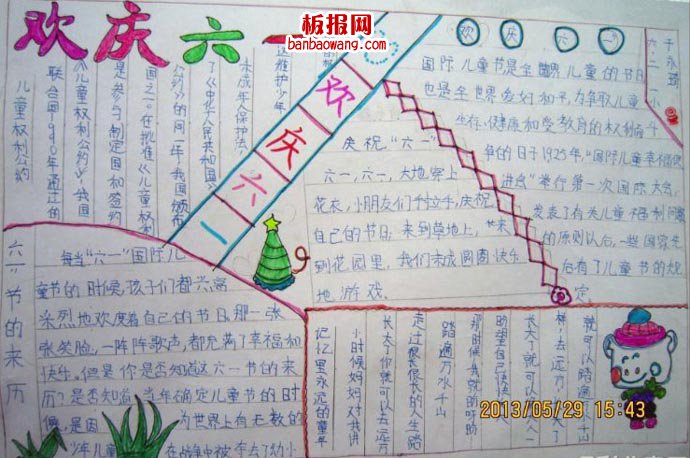 欢庆六一
板报网
banbaowang.com
欢庆六一
于永琦
六二
儿童权利公约
联合国1990年通过的
《儿童权利公约》，我国
是参与制定国和签约
国之一。在批准《儿童权利
公约》的同一年，我国颁布
了《中华人民共和国
未成年人保护法》
维护少年
欢庆六一
庆祝"六一"
六一，六一，大地穿上
花衣，小朋友们手拉手，庆祝
自己的节日，来到草地上，
到花园里，我们来成圆圈快乐
地游戏。
国际儿童节是全世界儿童的节日
也是全世界爱好和平，为争取儿童
生存、健康和受教育的权利而斗
争的日子1925年，"国际儿童幸福促
进会"举行第一次国际大会，
发表了有关儿童福利问题
的原则以后，一些国家先
后有了儿童节的规
定。
六一节的来历
每当"六一"国际儿
童节的时候，孩子们都兴高
采烈地欢度着自己的节日，那一张
张笑脸，一阵阵歌声，都充满了幸福和
快乐。但是你是否知道这六一节的来
历？是否知道，当年确定儿童节的时
候，是因 为世界上有无数的
少年儿童 在战争中被夺去了幼小
记忆里永远的童年
小时候妈妈对我讲
长大了你就可以去远方
走过很长很长的人生路
踏遍万水千山
那时候我就的时盼
盼望自己快快
长大了就可以一个人
去远方
就可以踏遍 千山
2013/05/29 15:43